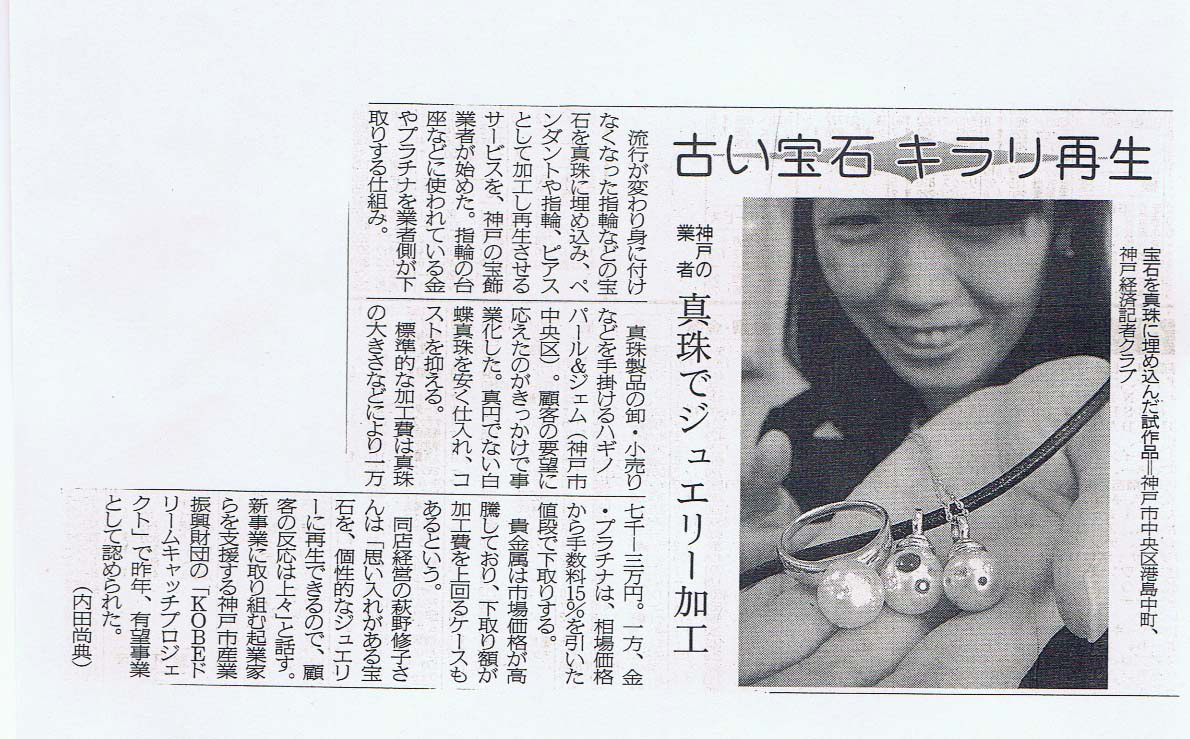 古い宝石 キラリ再生
宝石を真珠に埋め込んだ試作品＝神戸市中央区港島中町、
神戸経済記者クラブ
神戸の
業者
真珠でジュエリー加工
流行が変わり身に付け
なくなった指輪などの宝
石を真珠に埋め込み、ペ
ンダントや指輪、ピアス
として加工し再生させる
サービスを、神戸の宝飾
業者が始めた。指輪の台
座などに使われている金
やプラチナを業者側が下
取りする仕組み。
真珠製品の卸・小売り
などを手掛けるハギノ
パール&ジェム（神戸市
中央区）。顧客の要望に
応えたのがきっかけで事
業化した。真円でない白
蝶真珠を安く仕入れ、コ
ストを抑える。
標準的な加工費は真珠
の大きさなどにより一万
七千―三万円。一方、金
・プラチナは、相場価格
から手数料15％を引いた
値段で下取りする。
貴金属は市場価格が高
騰しており、下取り額が
加工費を上回るケースも
あるという。
同店経営の萩野修子さ
んは「思い入れがある宝
石を、個性的なジュエリ
ーに再生できるので、顧
客の反応は上々」と話す。
新事業に取り組む起業家
らを支援する神戸市産業
振興財団の「KOBEド
リームキャッチプロジェ
クト」で昨年、有望事業
として認められた。
（内田尚典）